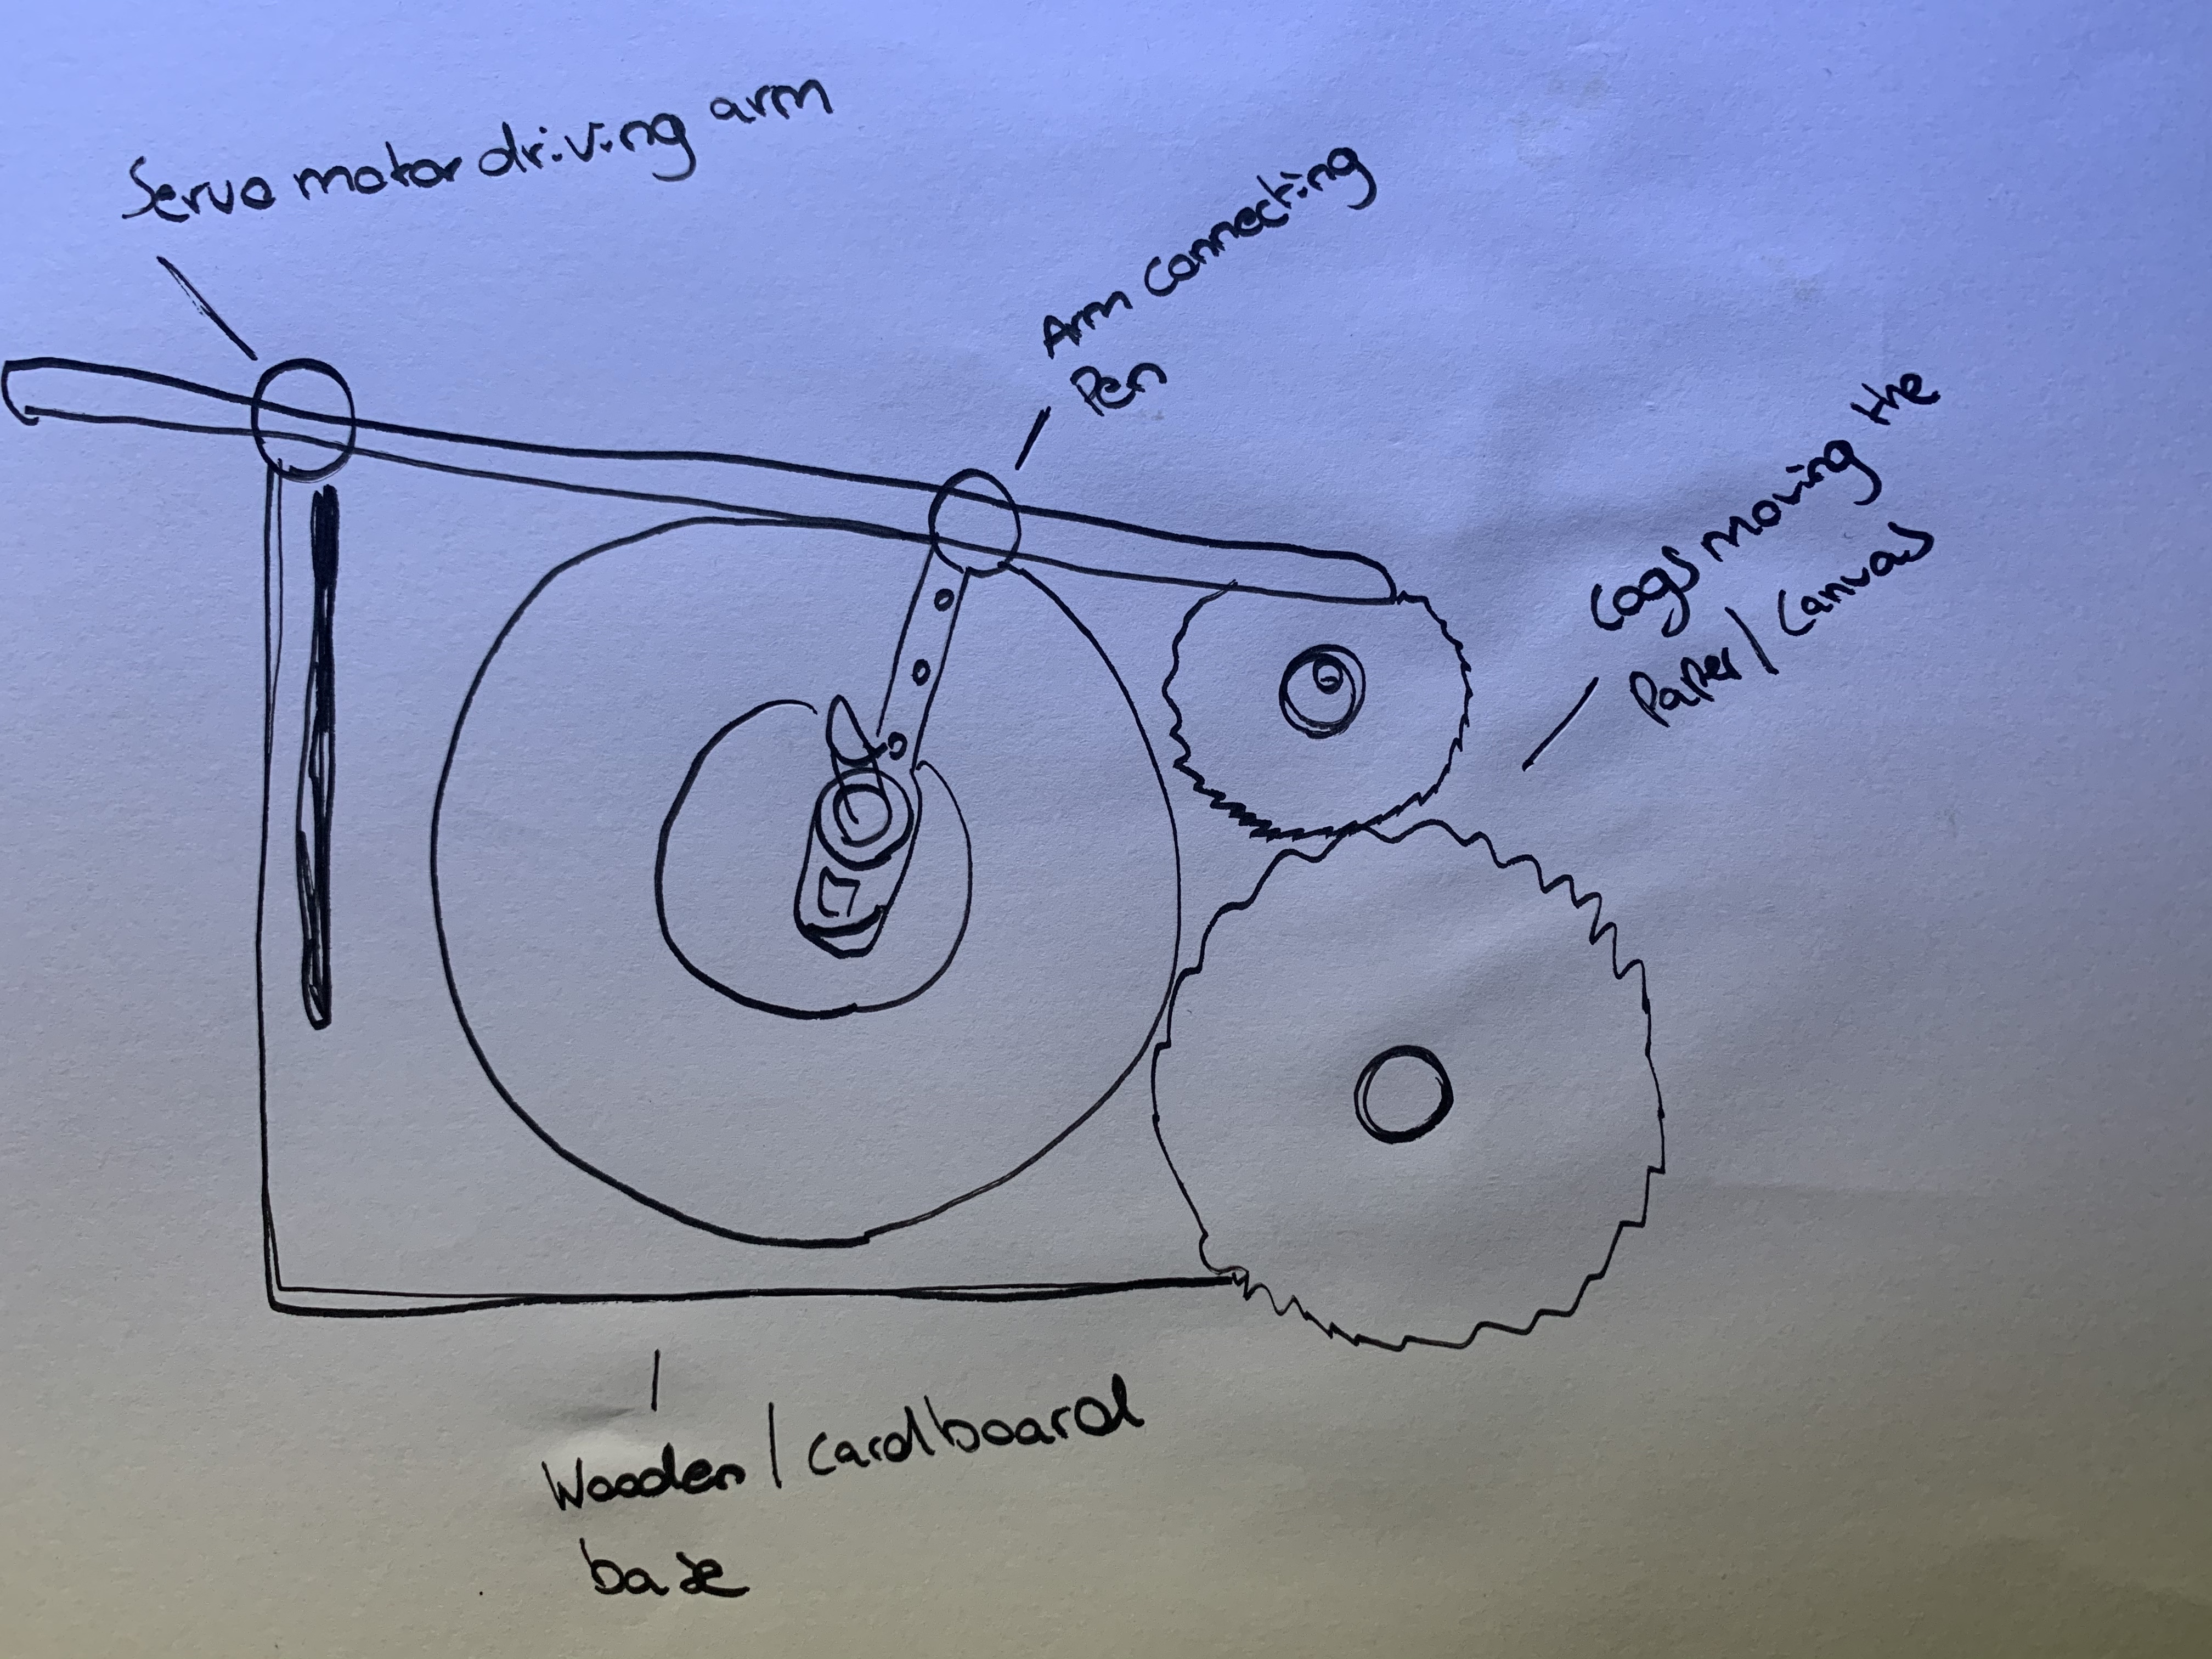 Servo motor driving arm
Arm Connecting
Pen
Cogs moving the
Paper/Canvas
Wooden/cardboard
base